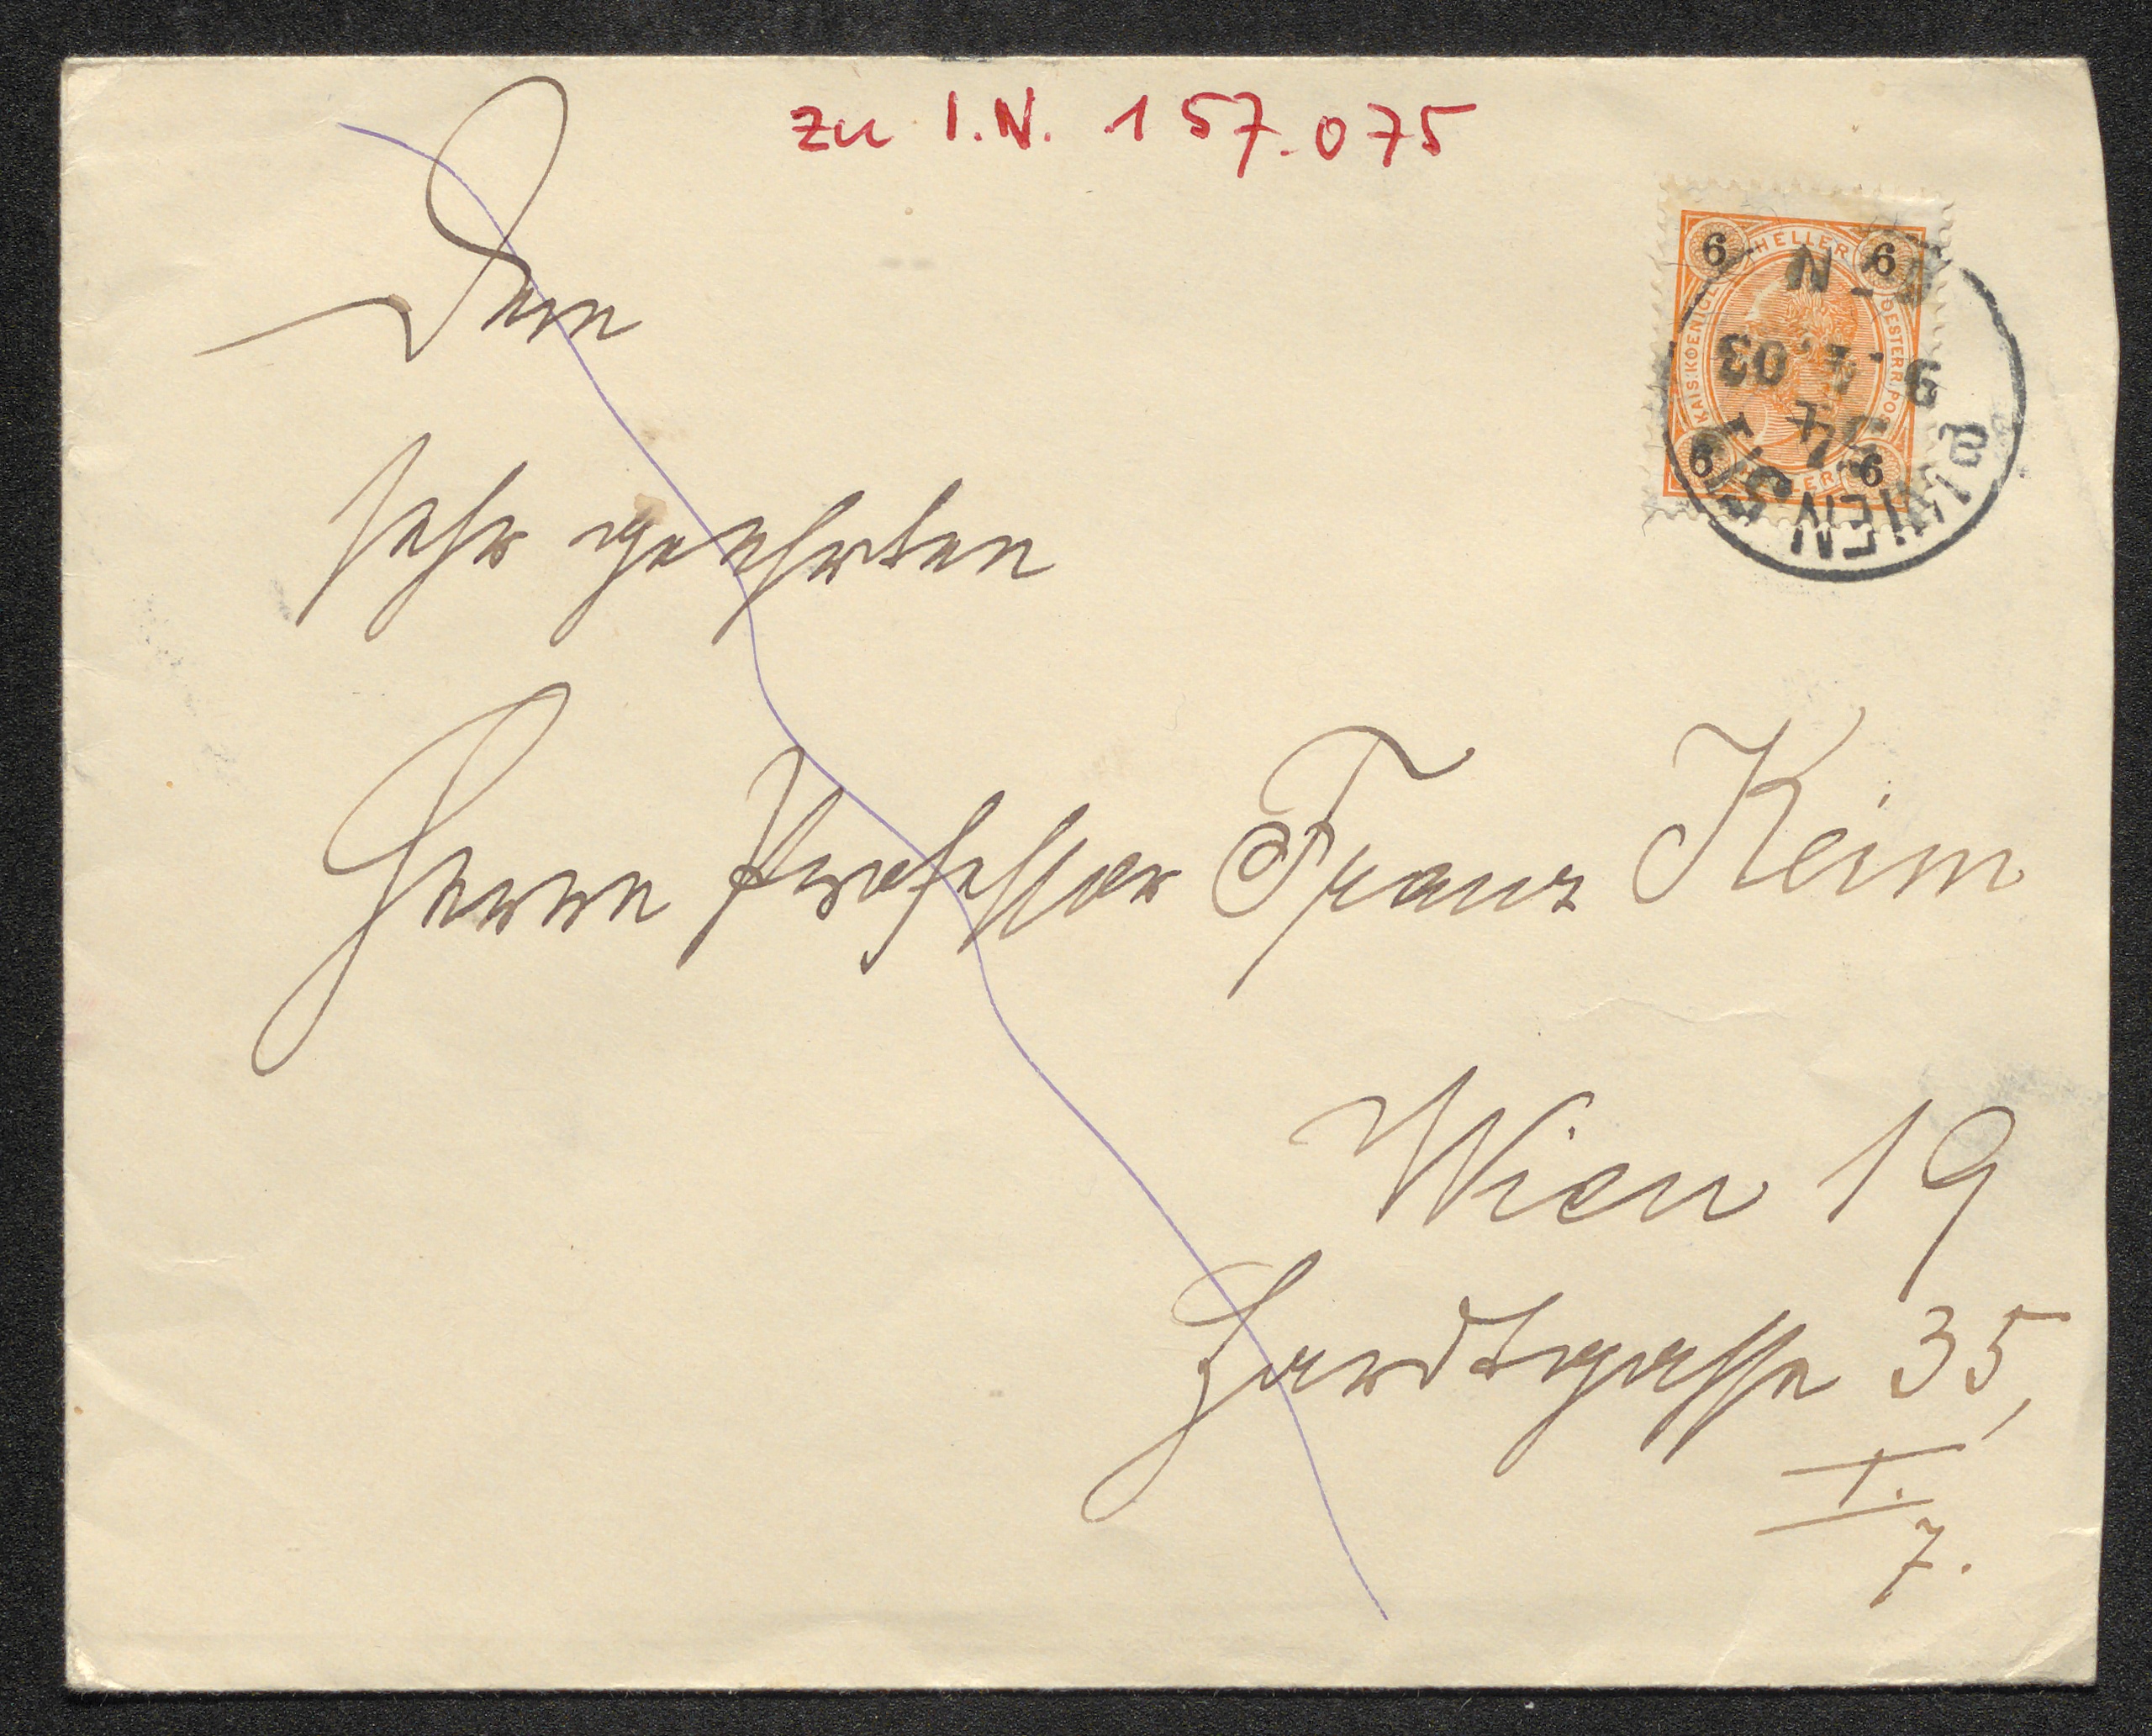 zu I.N. 157.075
Dem
sehr geehrten
Herrn Professor Franz Keim
Wien 19
Hardtgasse 35,
I.
7.
6 HELLER 6
KAIS. KOENIGL. OESTERR. POST
6 HELLER 6
WIEN
9. 4. 03